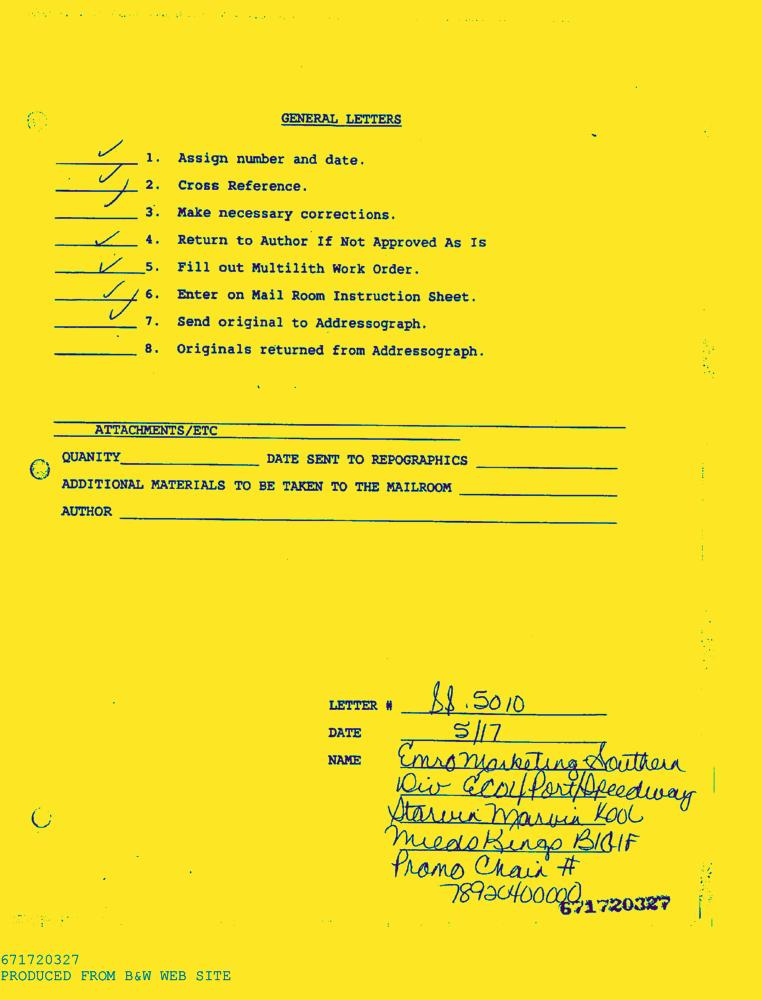 GENERAL LETTERS
✓ 1. Assign number and date.
✓ 2. Cross Reference.
✓ 3. Make necessary corrections.
✓ 4. Return to Author If Not Approved As Is
✓ 5. Fill out Multilith Work Order.
✓ 6. Enter on Mail Room Instruction Sheet.
✓ 7. Send original to Addressograph.
8. Originals returned from Addressograph.
ATTACHMENTS/ETC
QUANITY DATE SENT TO REPOGRAPHICS
ADDITIONAL MATERIALS TO BE TAKEN TO THE MAILROOM
AUTHOR
LETTER # SS.5010
DATE 5/17
NAME Emro Marketing Southern
Div Ecol/Port/Speedway
Starvin Marvin Kool
Milds Kings B1G1F
Promo Chain #
78920400000
671720327
671720327
PRODUCED FROM B&W WEB SITE